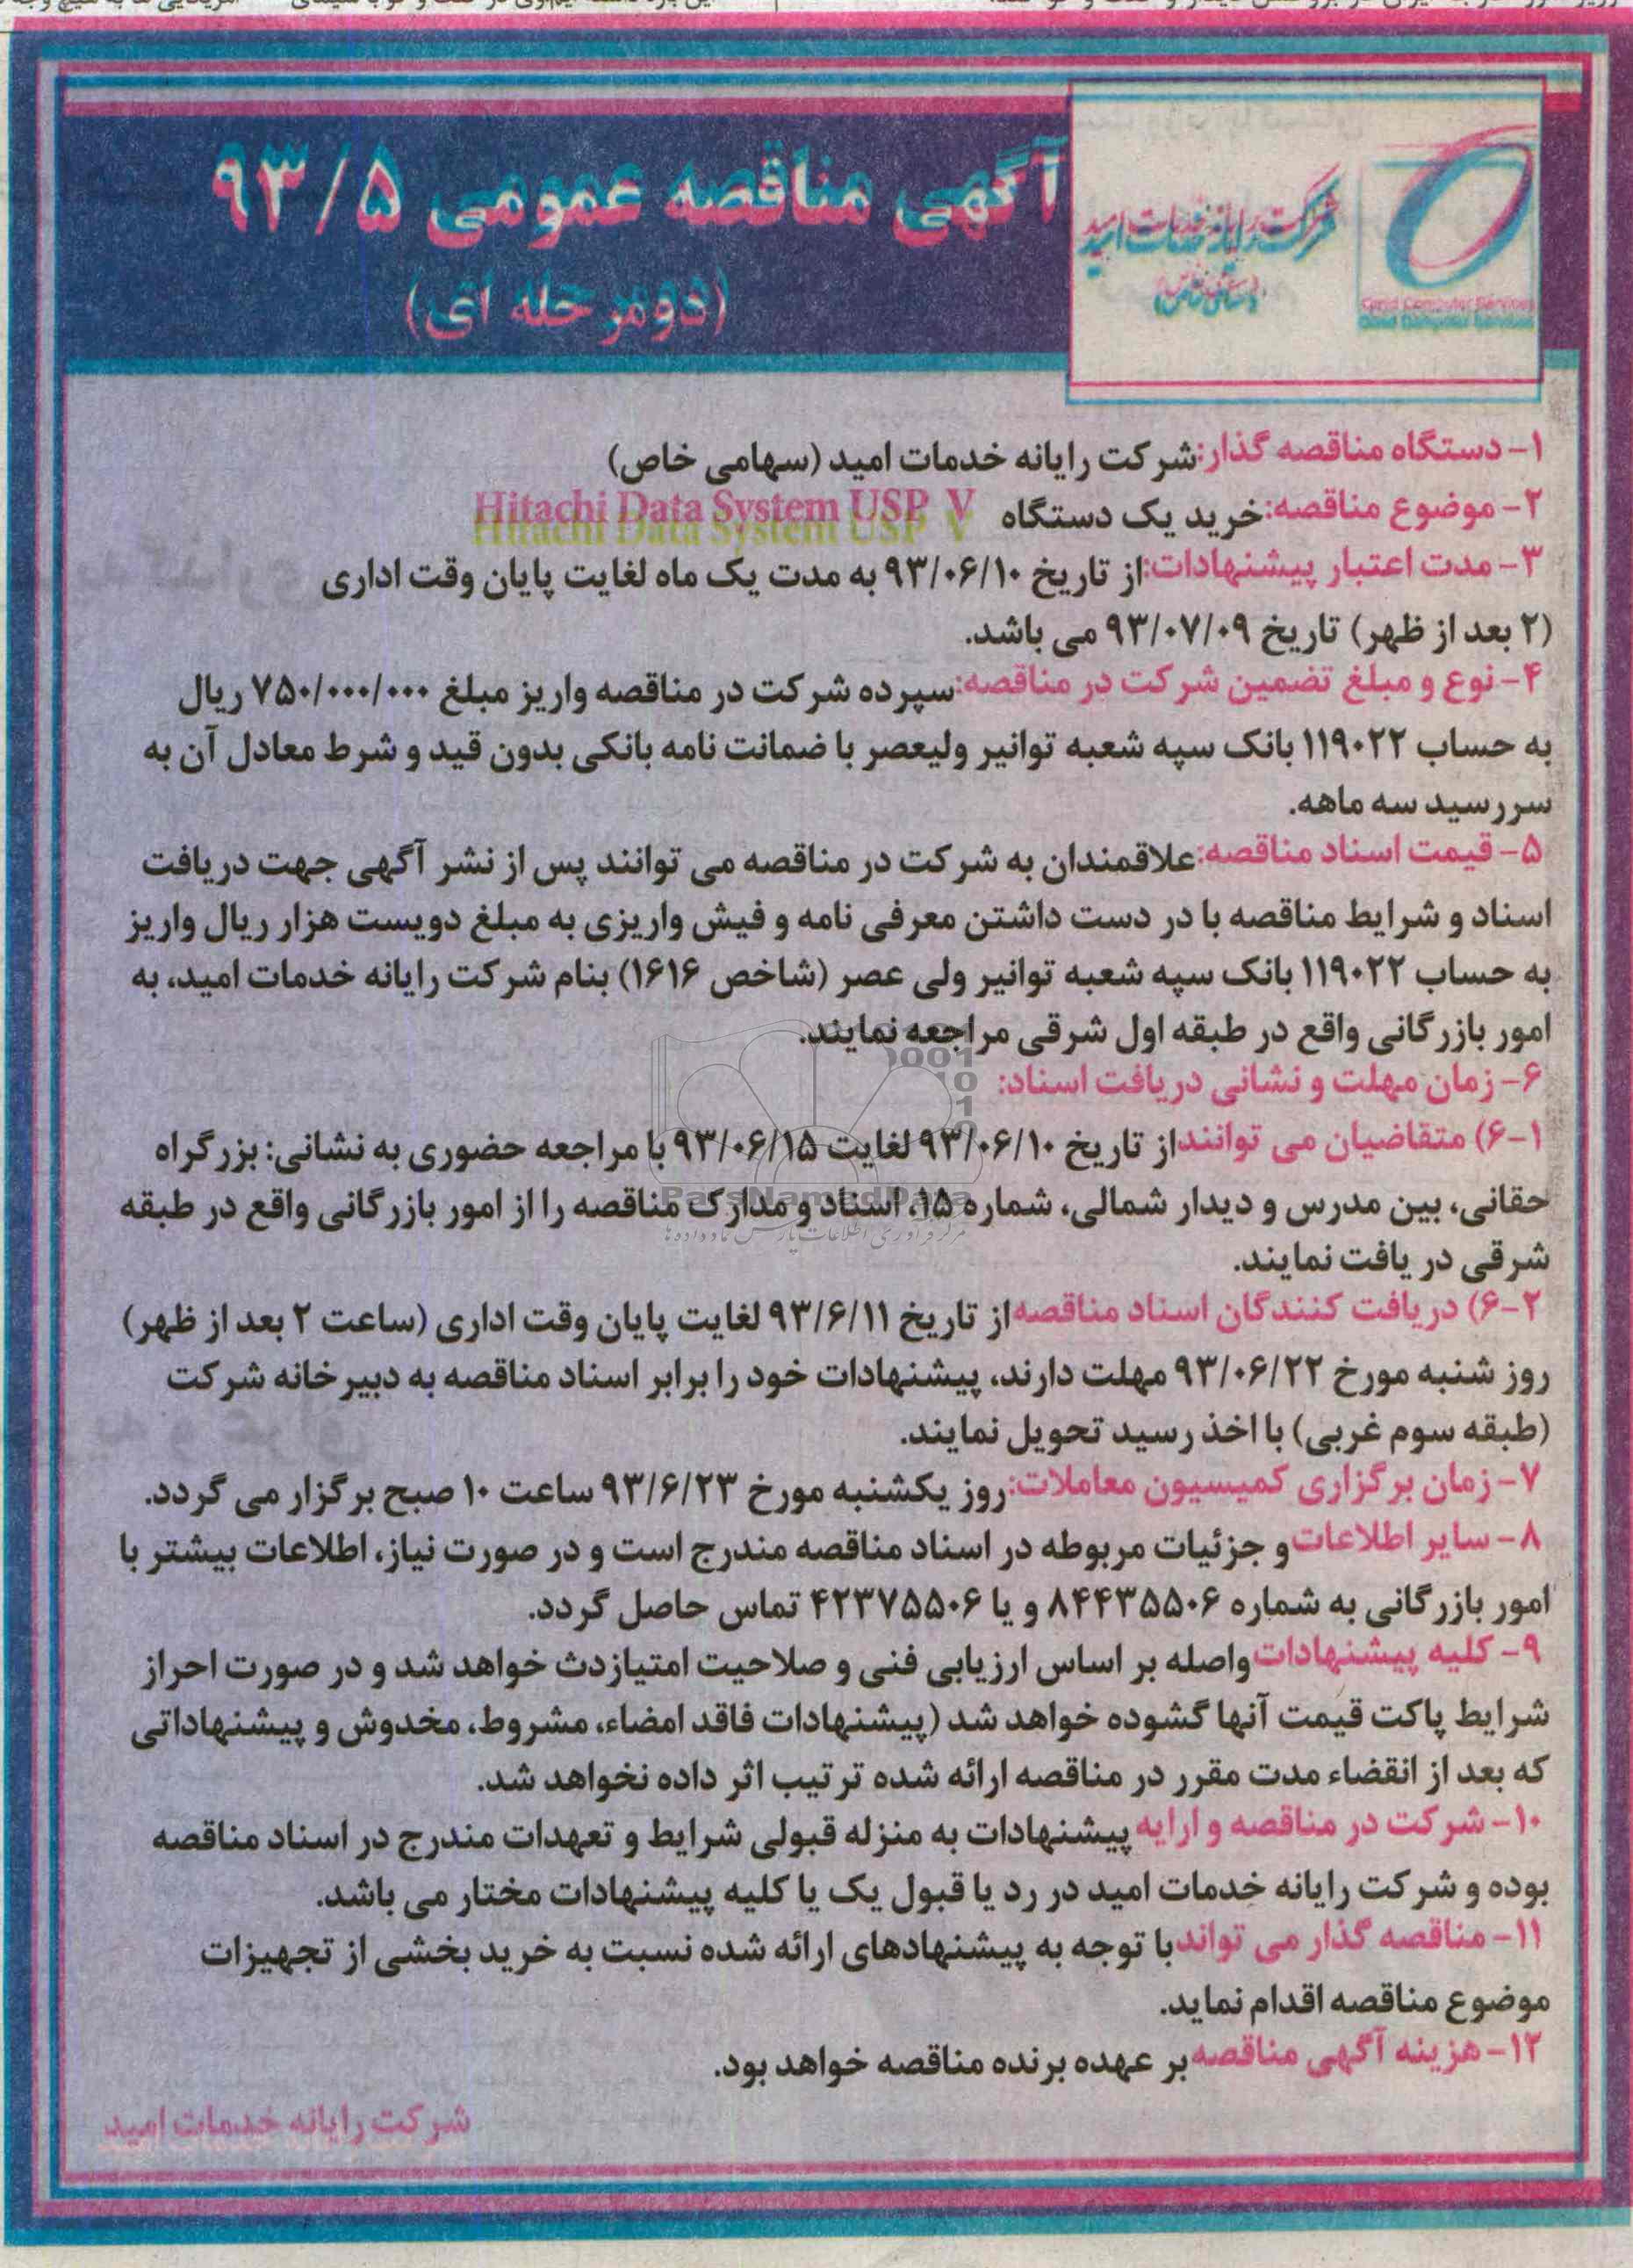 آگهی مناقصه عمومی ۹۳/۵
(دومرحله ای)
شرکت رایانه خدمات امید
(سهامی خاص)
Omid Computer Services
۱- دستگاه مناقصه گذار:شرکت رایانه خدمات امید (سهامی خاص)
۲- موضوع مناقصه:خرید یک دستگاه Hitachi Data System USP V
۳- مدت اعتبار پیشنهادات:از تاریخ ۹۳/۰۶/۱۰ به مدت یک ماه لغایت پایان وقت اداری
(۲ بعد از ظهر) تاریخ ۹۳/۰۷/۰۹ می باشد.
۴- نوع و مبلغ تضمین شرکت در مناقصه:سپرده شرکت در مناقصه واریز مبلغ ۷۵۰/۰۰۰/۰۰۰ ریال
به حساب ۱۱۹۰۲۲ بانک سپه شعبه توانیر ولیعصر با ضمانت نامه بانکی بدون قید و شرط معادل آن به
سررسید سه ماهه.
۵- قیمت اسناد مناقصه:علاقمندان به شرکت در مناقصه می توانند پس از نشر آگهی جهت دریافت
اسناد و شرایط مناقصه با در دست داشتن معرفی نامه و فیش واریزی به مبلغ دویست هزار ریال واریز
به حساب ۱۱۹۰۲۲ بانک سپه شعبه توانیر ولی عصر (شاخص ۱۶۱۶) بنام شرکت رایانه خدمات امید، به
امور بازرگانی واقع در طبقه اول شرقی مراجعه نمایند.
۶- زمان مهلت و نشانی دریافت اسناد:
۶-۱) متقاضیان می توانند از تاریخ ۹۳/۰۶/۱۰ لغایت ۹۳/۰۶/۱۵ با مراجعه حضوری به نشانی: بزرگراه
حقانی، بین مدرس و دیدار شمالی، شماره ۱۵، اسناد و مدارک مناقصه را از امور بازرگانی واقع در طبقه
شرقی دریافت نمایند.
۶-۲) دریافت کنندگان اسناد مناقصه از تاریخ ۹۳/۶/۱۱ لغایت پایان وقت اداری (ساعت ۲ بعد از ظهر)
روز شنبه مورخ ۹۳/۰۶/۲۲ مهلت دارند، پیشنهادات خود را برابر اسناد مناقصه به دبیرخانه شرکت
(طبقه سوم غربی) با اخذ رسید تحویل نمایند.
۷- زمان برگزاری کمیسیون معاملات:روز یکشنبه مورخ ۹۳/۶/۲۳ ساعت ۱۰ صبح برگزار می گردد.
۸- سایر اطلاعات و جزئیات مربوطه در اسناد مناقصه مندرج است و در صورت نیاز، اطلاعات بیشتر با
امور بازرگانی به شماره ۸۴۴۳۵۵۰۶ و یا ۴۲۳۷۵۵۰۶ تماس حاصل گردد.
۹- کلیه پیشنهادات واصله بر اساس ارزیابی فنی و صلاحیت امتیازدث خواهد شد و در صورت احراز
شرایط پاکت قیمت آنها گشوده خواهد شد (پیشنهادات فاقد امضاء، مشروط، مخدوش و پیشنهاداتی
که بعد از انقضاء مدت مقرر در مناقصه ارائه شده ترتیب اثر داده نخواهد شد.
۱۰- شرکت در مناقصه و ارایه پیشنهادات به منزله قبولی شرایط و تعهدات مندرج در اسناد مناقصه
بوده و شرکت رایانه خدمات امید در رد یا قبول یک یا کلیه پیشنهادات مختار می باشد.
۱۱- مناقصه گذار می تواند با توجه به پیشنهادهای ارائه شده نسبت به خرید بخشی از تجهیزات
موضوع مناقصه اقدام نماید.
۱۲- هزینه آگهی مناقصه بر عهده برنده مناقصه خواهد بود.
شرکت رایانه خدمات امید
ParsNamadData
مرکز فرآوری اطلاعات پارس نماد داده ها